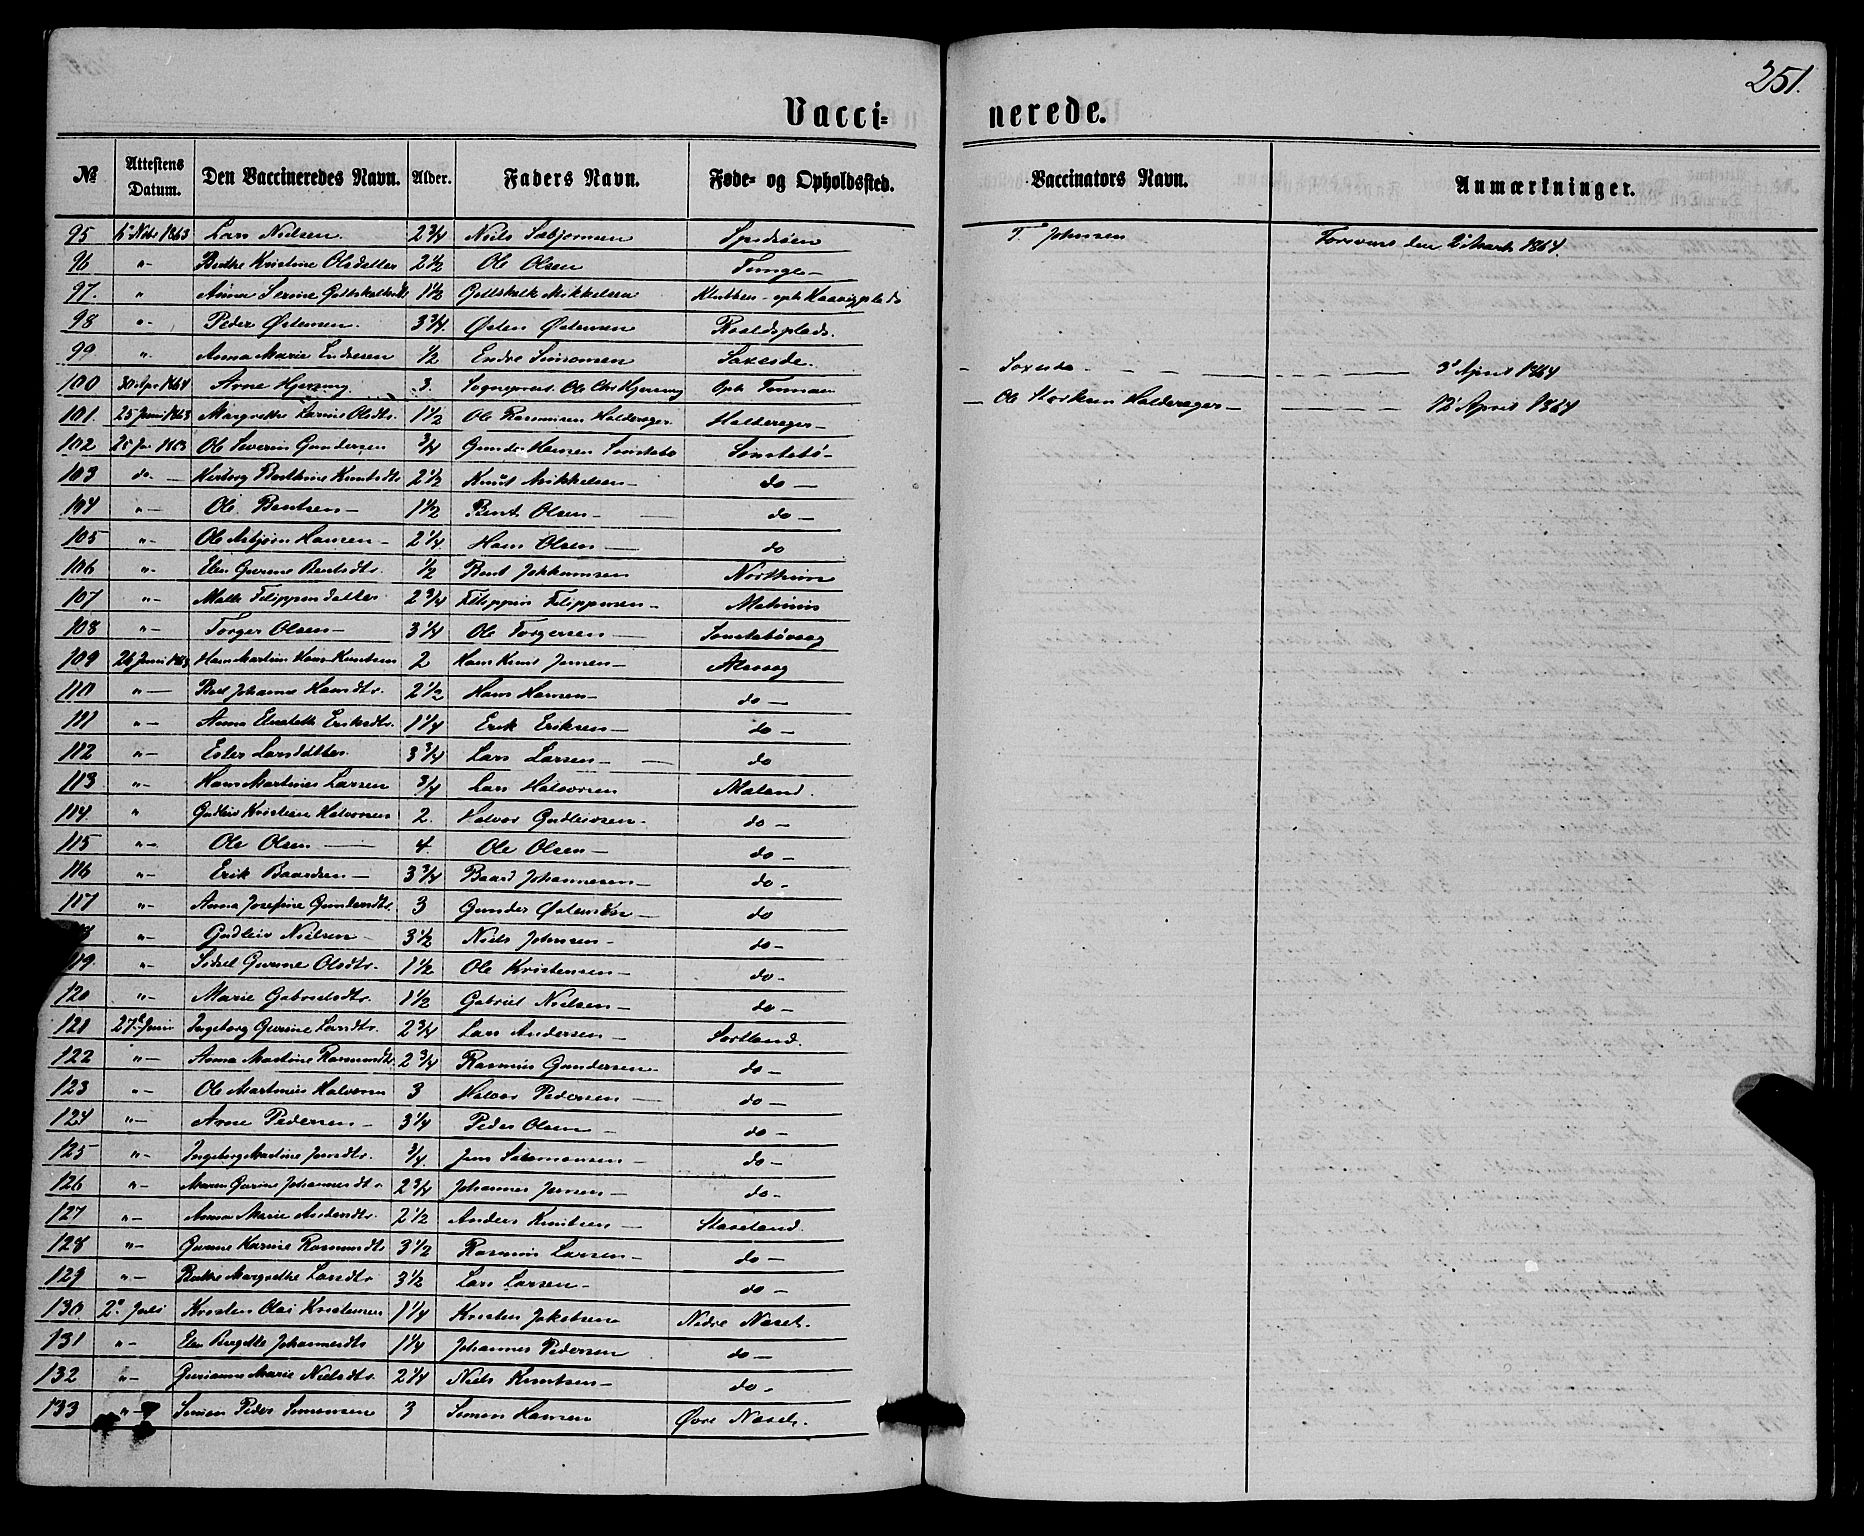 251.
Vacci= nerede.
№ Attestens Datum. Den Vaccineredes Navn. Alder. Faders Navn. Føde- og Opholdssted. Vaccinators Navn. Anmærkninger.
95 6 Nobr 1863 Lars Nielsen 2 3/4 Niels T. Johnsen den 2 Marts 1864.
96 "- Berthe Kristine Olsdatter 2 1/2 Ole Olsen
97. " Anna Serine 1 1/2 Gottskalk Mikkelsen
98 "- Peder Østensen 3 3/4. Østen Østensen
99 "- Anna Marie Endresen 1/2 Endre Simonsen
100 30 Apr 1864 Arne 3. Sognepræst Ole Chr Oph. 3 April 1864
101. 25 Juni 1863 Margrethe Larine Olsdtr. 1 1/2 Ole Rasmusen Halderager Halderager- — Ole Halderager — 12 April 1864
102 25 1863 Ole Severin Gundersen 3/4 Gunder Hansen Sonstabø Sonstabø-
103 do. — Berthine Knutsdtr 2 1/2 Knut Mikkelsen — do —
104 "- Ole Bentsen — 1 1/2 Bent Olsen — do —
105 "- Ole Asbjørn Hansen - 2 1/4 Hans Olsen — do
106 "- Elen Gurine Bentsdtr. 1/2 Bent
107 "- Malte Filippusdatter 2 3/4 Filippus Filippusen —
108 "- Torger Olsen — 3 1/4 Ole Torgersen — Sonstabøvaag
109 26 Juni 1863 Hans Martin Hans Knutsen 2 Hans Knut Jensen — Alsvaag
110 " — Johanne Hansdtr. 2 1/2 Hans Hansen — do —
111 "- Anna Elisabeth Eriksdtr. 1 1/4 Erik Eriksen — do —
112 "- Ester Larsdatter 3 3/4 Lars Larsen — do
113 "- Hans Martinus Larsen 3/4 Lars Halvorsen Maland.
114. " Gudleiv Kristian Halvorsen 2. Halvor Gudleivsen — do —
115 "- Ole Olsen — 4. Ole Olsen — do —
116 "- Erik Baardsen — 3 3/4 Baard Johannesen — do -
117 "- Anna Josefine Gundersdtr. 3 Gunder Østensen — do
"- Gudleiv Nielsen — 3 1/2 Niels Johnsen — do —
119. "- Sidsel Gurine Olsdtr. 1 1/2 Ole Kristensen — do -
120 "- Marie Gabrielsdtr. 1 1/2 Gabriel Nielsen — do —
121 27 Juni Ingeborg Gurine Larsdtr. 2 3/4 Lars Andersen Sortland.
122 "- Anna Martine Rasmusdtr. 2 3/4 Rasmus Gundersen do —
123 "- Ole Martinius Halvorsen 3 Halvor Pedersen — do —
124 "- Arne Pedersen — 3 1/4 Peder Olsen — do —
125 "- Ingeborg Martine Jensdtr. 3/4. Jens Salomonsen — do —
126 "- Maren Gurine Johannesdtr. 2 3/4 Johannes Jensen — do -
127 "- Anna Marie Andersdtr. 2 1/2 Anders Knutsen — Stavland.
128 "- Gurine Karine Rasmusdtr 3 1/2 Rasmus Larsen — do —
129 "- Berthe Margrethe Larsdtr 3 1/2 Lars Larsen — do —
130. 2 Juli Kristen Olai Kristensen 1 1/4 Kristen Jakobsen Nedre Næset.
131 "- Elen Bergitte Johannesdtr 1 1/4 Johannes Pedersen do —
132 "- Gurianna Marie Nielsdtr. 2 1/4 Niels Knutsen — do -
133 "- Simon Peder Simonsen 3 Simon Hansen Øvre Næset.